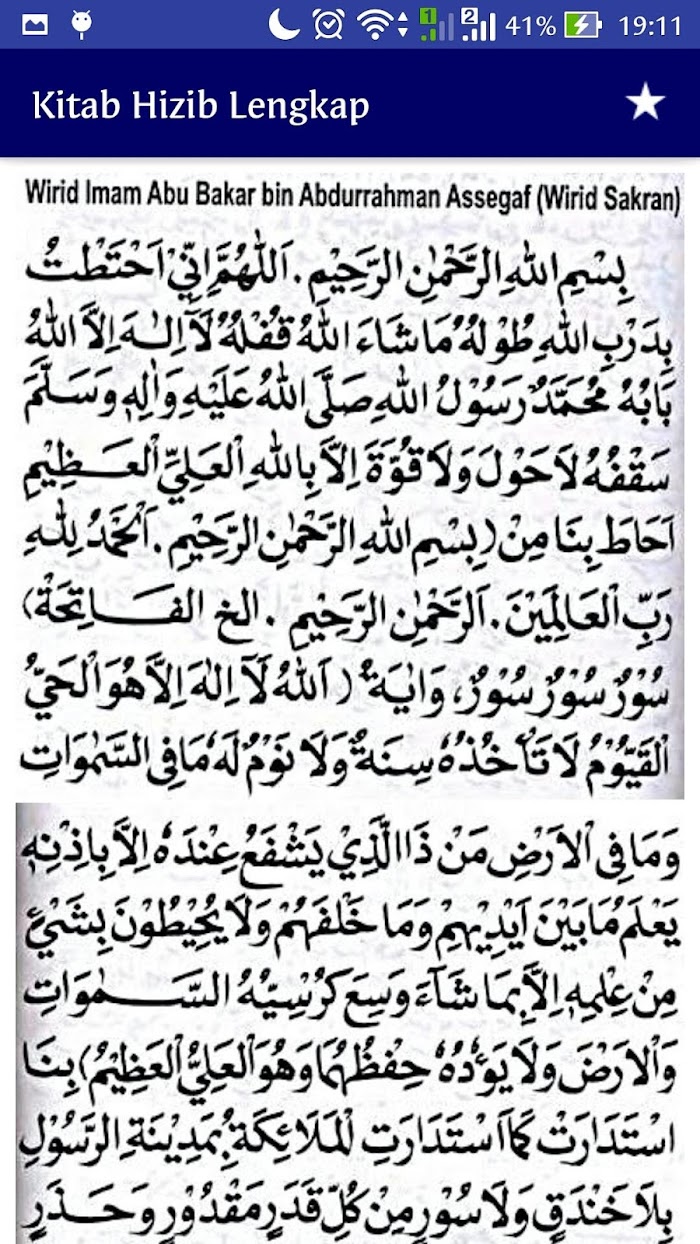 41% 19:11
Kitab Hizib Lengkap
Wirid Imam Abu Bakar bin Abdurrahman Assegaf (Wirid Sakran)
بِسْمِ اللهِ الرَّحْمٰنِ الرَّحِيْمِ. اَللّٰهُمَّ اِنِّيْ اَحْتَطْتُ
بِدَرْبِ اللهِ طُوْلُهُ مَا شَاءَ اللهُ قُفْلُهُ لَآ اِلٰهَ اِلَّا اللهُ
بَابُهُ مُحَمَّدٌ رَسُوْلُ اللهِ صَلَّى اللهُ عَلَيْهِ وَاٰلِهٖ وَسَلَّمَ
سَقْفُهُ لَاحَوْلَ وَلَا قُوَّةَ اِلَّا بِاللهِ الْعَلِيِّ الْعَظِيْمِ
اَحَاطَ بِنَا مِنْ (بِسْمِ اللهِ الرَّحْمٰنِ الرَّحِيْمِ. اَلْحَمْدُ لِلّٰهِ
رَبِّ الْعَالَمِيْنَ. اَلرَّحْمٰنِ الرَّحِيْمِ. الخ الفَاتِحَة)
سُوْرٌ سُوْرٌ سُوْرٌ، وَاٰيَةٌ (اَللهُ لَآ اِلٰهَ اِلَّا هُوَ الْحَيُّ
الْقَيُّوْمُ لَا تَأْخُذُهٗ سِنَةٌ وَلَا نَوْمٌ لَهٗ مَا فِى السَّمٰوَاتِ
وَمَا فِى الْاَرْضِ مَنْ ذَا الَّذِيْ يَشْفَعُ عِنْدَهٗ اِلَّا بِاِذْنِهٖ
يَعْلَمُ مَا بَيْنَ اَيْدِيْهِمْ وَمَا خَلْفَهُمْ وَلَا يُحِيْطُوْنَ بِشَيْءٍ
مِنْ عِلْمِهٖ اِلَّا بِمَا شَآءَ وَسِعَ كُرْسِيُّهُ السَّمٰوَاتِ
وَالْاَرْضَ وَلَا يَؤُدُهٗ حِفْظُهُمَا وَهُوَ الْعَلِيُّ الْعَظِيْمُ) بِنَا
اسْتَدَارَتْ كَمَا اسْتَدَارَتِ الْمَلَائِكَةُ بِمَدِيْنَةِ الرَّسُوْلِ
بِلَا خَنْدَقٍ وَلَا سُوْرٍ مِنْ كُلِّ قَدَرٍ مَقْدُوْرٍ وَحَذَرٍ